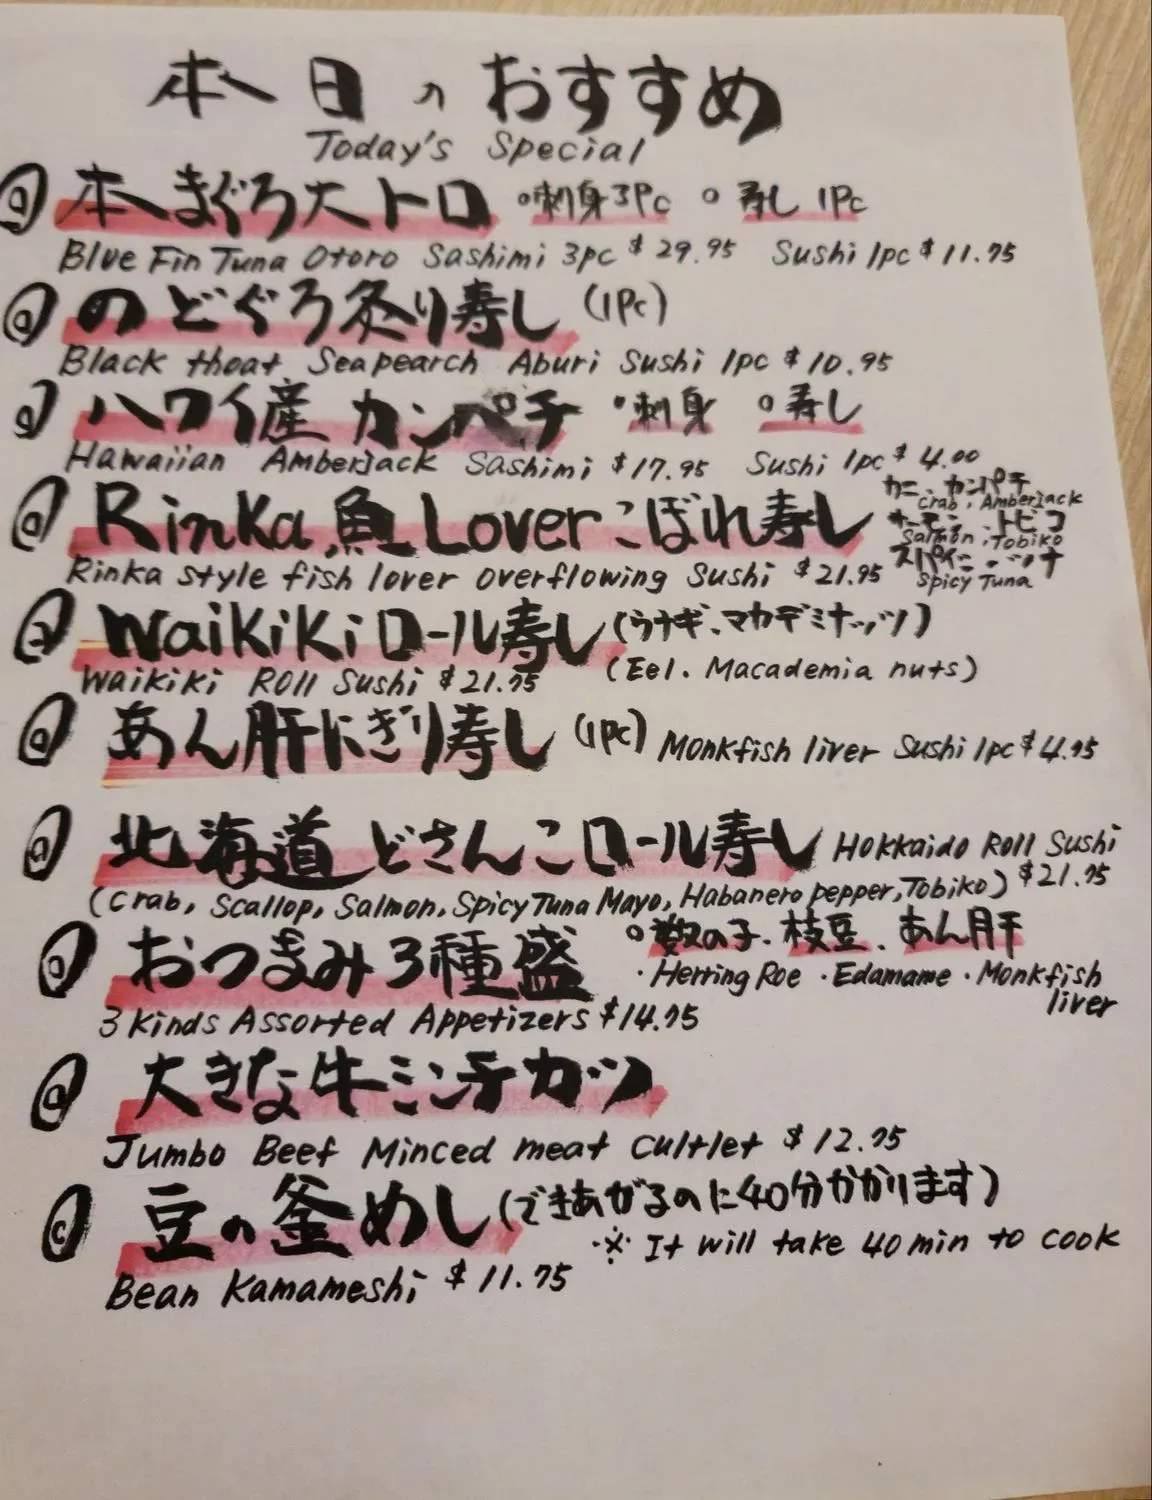 本日のおすすめ
Today's Special
本まぐろ大トロ ○刺身3Pc ○寿し1Pc
Blue Fin Tuna Otoro Sashimi 3pc $29.95 Sushi 1pc $11.95
のどぐろ炙り寿し (1Pc)
Black thoat Seapearch Aburi Sushi 1pc $10.95
ハワイ産カンパチ ・刺身 ○寿し
Hawaiian Amberjack Sashimi $17.95 Sushi 1pc $4.00
Rinka魚Loverこぼれ寿し
カニ、カンパチ
Crab, Amberjack
サーモン、トビコ
Salmon, Tobiko
スパイシーツナ
Spicy Tuna
Rinka style fish lover overflowing Sushi $21.95
Waikikiロール寿し(ウナギ、マカデミナッツ)
Waikiki Roll Sushi $21.95 (Eel. Macademia nuts)
あん肝にぎり寿し (1pc) Monkfish liver Sushi 1pc $4.95
北海道どさんこロール寿し Hokkaido Roll Sushi
(Crab, Scallop, Salmon, Spicy Tuna Mayo, Habanero pepper, Tobiko) $21.95
おつまみ3種盛 ○数の子、枝豆、あん肝
・Herring Roe ・Edamame ・Monkfish liver
3 Kinds Assorted Appetizers $14.95
大きな牛ミンチカツ
Jumbo Beef Minced meat cultlet $12.95
豆の釜めし(できあがるのに40分かかります)
※ It will take 40min to cook
Bean Kamameshi $11.95